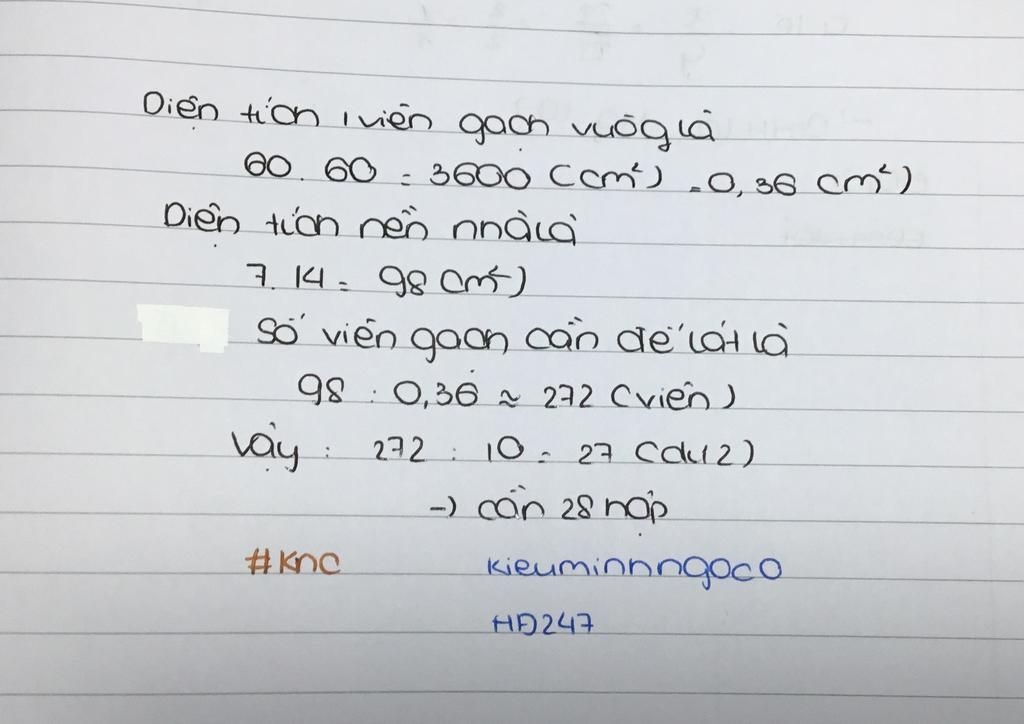 Diện tích 1 viên gạch vuôg là
60. 60 = 3600 (cm²) = 0,36 (m²)
Diện tích nền nhà là
7. 14 = 98 (m²)
Số viên gạch cần để lát là
98 : 0,36 ≈ 272 (viên)
Vậy : 272 : 10 = 27 (dư 2)
-) cần 28 hộp
#Knc kieuminhngoc0
HĐ247